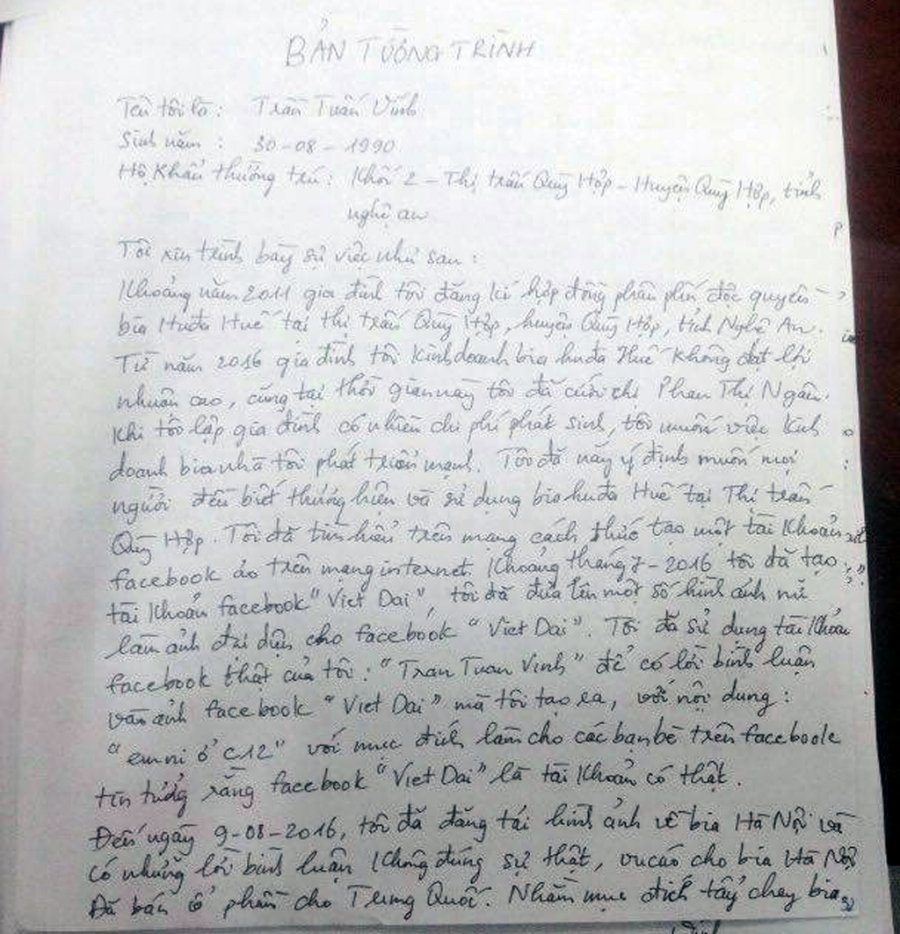 BẢN TƯỜNG TRÌNH
Tên tôi là : Trần Tuấn Vĩnh
Sinh năm : 30-08-1990
Hộ Khẩu thường trú : Khối 2 - Thị trấn Quỳ Hợp - Huyện Quỳ Hợp, tỉnh
nghệ an
Tôi xin trình bày sự việc như sau :
Khoảng năm 2011 gia đình tôi đăng kí hợp đồng phân phối độc quyền
bia Huda Huế tại thị trấn Quỳ Hợp, huyện Quỳ Hợp, tỉnh Nghệ An.
Từ năm 2016 gia đình tôi Kinh doanh bia huda Huế không đạt lợi
nhuân cao, cũng tại thời gian này tôi đã cưới chị Phan Thị Ngân.
Khi tôi lập gia đình có nhiều chi phí phát sinh, tôi muốn việc Kinh
doanh bia nhà tôi phát triển mạnh. Tôi đã nảy ý định muốn mọi
người đều biết thương hiệu và sử dụng bia huda Huế tại Thị trấn
Quỳ Hợp. Tôi đã tìm hiểu trên mạng cách thức tạo một tài Khoản
facebook ảo trên mạng internet. Khoảng tháng 7-2016 tôi đã tạo
tài Khoản facebook "Viet Dai", tôi đã đưa lên một số hình ảnh nữ
làm ảnh đại diện cho facebook "Viet Dai". Tôi đã sử dụng tài Khoản
facebook thật của tôi : "Tran Tuan Vinh" để có lời bình luận
vào ảnh facebook "Viet Dai" mà tôi tạo ra, với nội dung :
"em vi ở c12" với mục đích làm cho các bạn bè trên facebook
tin tưởng rằng facebook "Viet Dai" là tài Khoản có thật.
Đến ngày 9-08-2016, tôi đã đăng tải hình ảnh về bia Hà Nội và
có những lời bình luận Không đúng sự thật, vu cáo cho bia Hà Nội
Đã bán cổ phần cho Trung Quốc. Nhằm mục đích tẩy chay bia